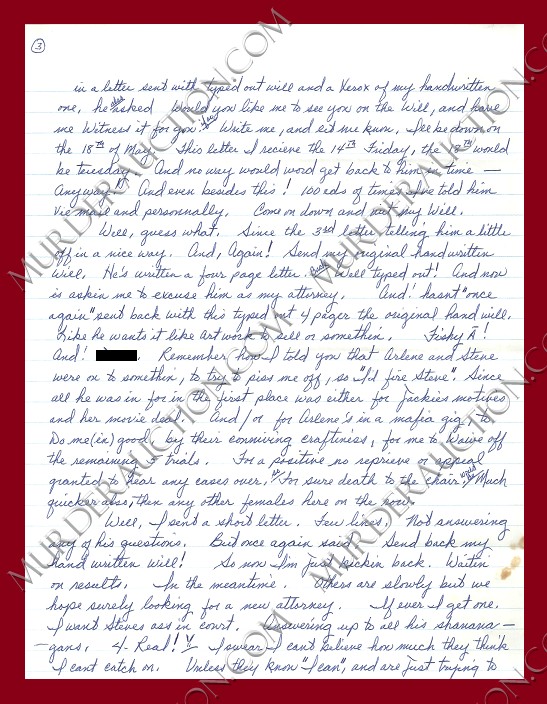 3
in a letter sent with typed out will and a Xerox of my handwritten
one, he also asked Would you like me to see you on the Will, and have
me Witness it for you. If so Write me, and let me know, I'll be down on
the 18TH of May. This letter I recieve the 14TH Friday, the 18TH would
be teusday. And no way would word get back to him in time —
Anyway! And even besides this! 100eds of times I've told him
Vie mail and personnally, Come on down and out my Will.
Well, guess what. Since the 3rd letter telling him a little
off in a nice way. And, Again! Send my original handwritten
will. He's written a four page letter. Well typed out! And now
is askin me to excuse him as my attorney. And! hasnt "once
again" sent back with this typed out 4 pager the original hand will.
Like he wants it like art work to sell or somethin. Fishy Ā!
And! Remember how I told you that Arlene and Steve
were on to somethin, to try to piss me off, so "I'd fire Steve". Since
all he was in for in the first place was either for Jackies motives
and her movie deal. And/or for Arlene's in a mafia gig, to
Do me (in) good, by their conniving craftiness, for me to Waive off
the remaining trials. For a positive no reprieve or appeal
granted to hear any cases over. For sure death to the chair. Would be Much
quicker also, then any other females here on the row.
Well, I sent a short letter. Few lines. Not answering
any of his questions. But once again said. Send back my
hand written will! So now I'm just kickin back. Waitin
on results. In the meantime. Others are slowly but we
hope surely looking for a new attorney. If ever I get one.
I want Steves ass in court. Answering up to all his shanana-
-gans. 4-Real! I swear I cant believe how much they think
I cant catch on. Unless they know "I can", and are just trying to
MURDERAUCTION.COM